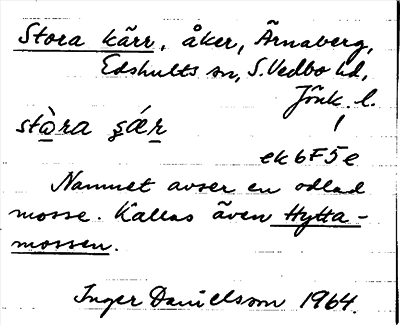 Stora kärr, åker, Ärnaberg,
Edshults sn, S. Vedbo hd,
Jönk. l.
stò̱ra s̨ǽr̠
ek 6F5e
Namnet avser en odlad
mosse. Kallas även Hytta-
mossen.
Inger Danielsson 1964.